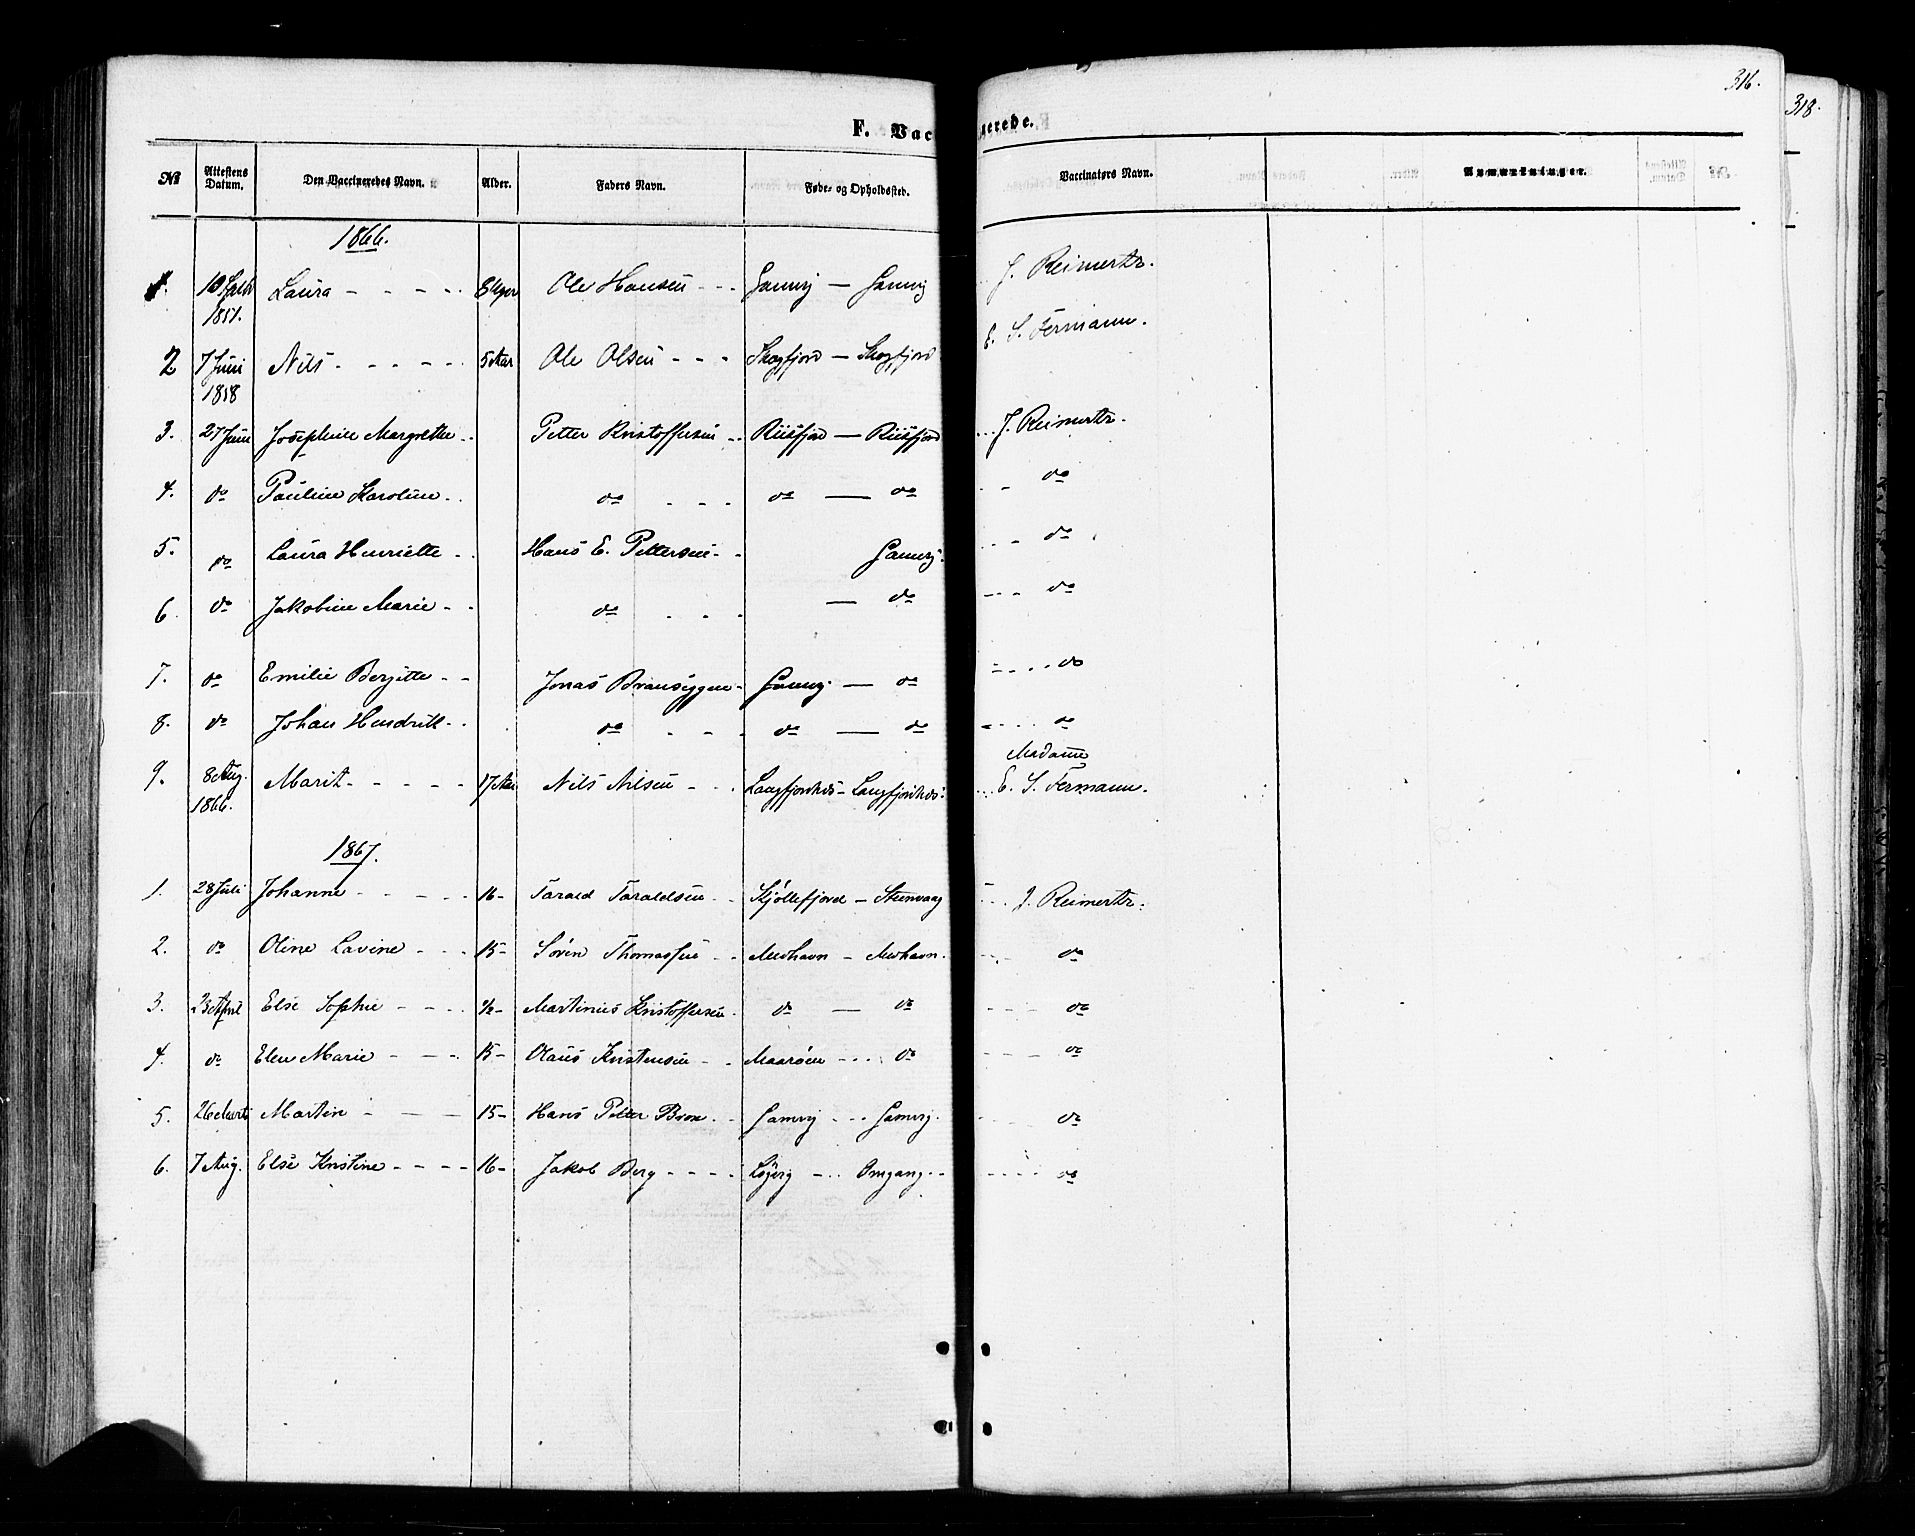 316.
318.
F. Vac
nerede.
№ Attestens Datum. Den Vaccineredes Navn. Alder. Faders Navn. Føde- og Opholdssted. Vaccinatørs Navn. Anmærkninger.
1866.
1. 10 1851. Laura - - - - Ole Hansen - - Gamvig — Gamvig J. Reimertz.
2 7 Juni 1858 Nils - - - - 5 Aar Ole Olsen - - - Skogfjord — Skogfjord E. S. Fermann.
3. 27 Juni Josephine Margrethe - - Petter Kristoffersen - - Riisfjord — Riisfjord J. Reimertz.
4. do Pauline Karoline - - do - - - do — do - - do
5. do Laura Henriette - - Hans E. Pettersen - - Gamvig - - - do
6. do Jakobine Marie - - do - - - — do - - - do
7. do Emilie Berjitte - - Jonas - Gamvig — do - - - do
8. do Johan Hendrik - - do - - - do — do - - - do
9. 8 Aug. 1866. Marit - - - - - 17 Aar Nils Nilsen - - - Langfjordnes - Langfjordnes Madame E. S. Fermann.
1867.
1. 28 Juli Johanne - - - - 16 - Tarald Taraldsen - - Kjøllefjord - Steenvaag - - - J. Reimertz.
2. do Oline Lavine - - - 15 - Søren Thomassen - - Medhavn - Medhavn. - - - do
3. 23 April Else Sophie - - - ½ - Martinus Kristoffersen - do — do - - - do
4. do Elen Marie - - - 15 - Olaus Kristensen - - Maarøen - - - do - - - do
5. 26 Marts Martin - - - 15 - Hans Petter - - Gamvig - - - Gamvig. - - - do
6. 7 Aug. Else Kristine - - - - 16 - Jakob Berg - - - - - - - Omgang - - - - - - do